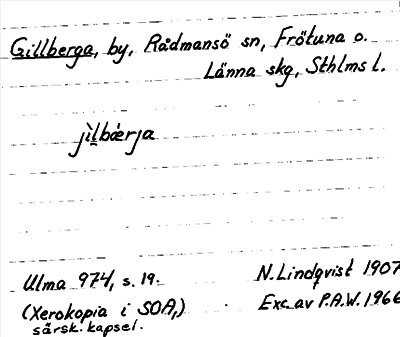 Gillberga, by, Rådmansö sn, Frötuna o.
Länna skg, Sthlms l.
jìlbǽrja
Ulma 974, s. 19.
N. Lindqvist 1907
(Xerokopia i SOA,)
särsk. kapsel.
Exc. av P.A.W. 1966